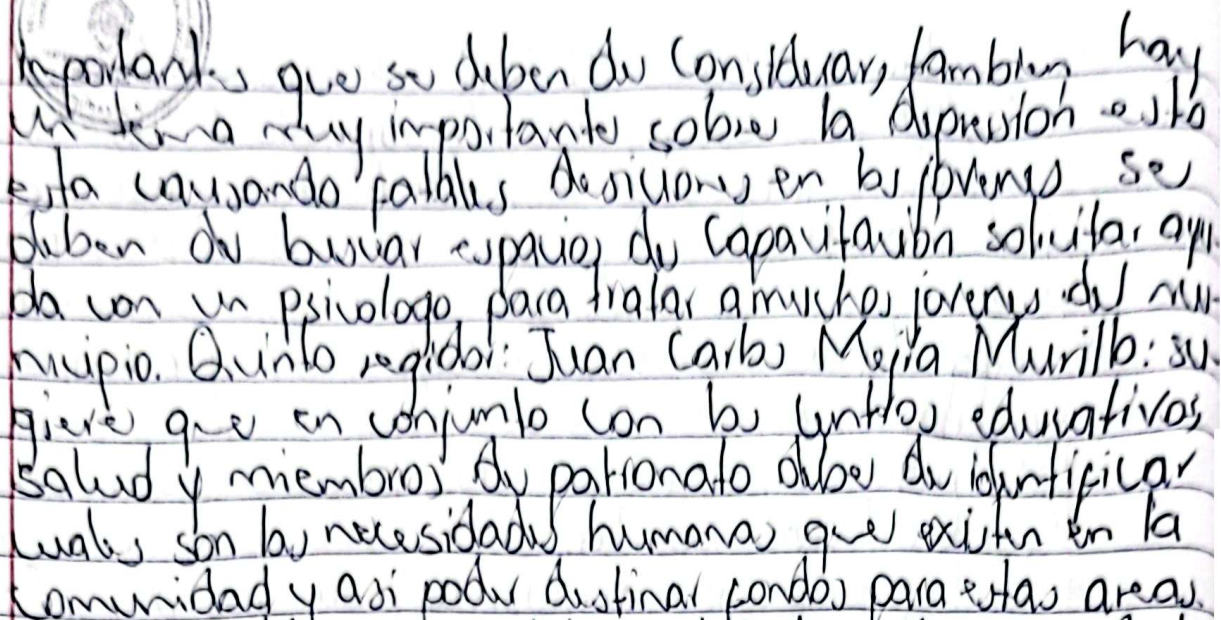 importantes que se deben de considerar, tambien hay
un tema muy importante sobre la depresion esto
esta causando fatales desiciones en los jovenes se
deben de buscar espacios de capacitación solicitar ayu-
da con un psicologo para tratar a muchos jovenes del mu-
nicipio. Quinto regidor: Juan Carlos Mejia Murillo: su-
giere que en conjunto con los centros educativos
salud y miembros de patronato debe de identificar
cuales son las necesidades humanas que existen en la
comunidad y asi poder destinar fondos para estas areas.